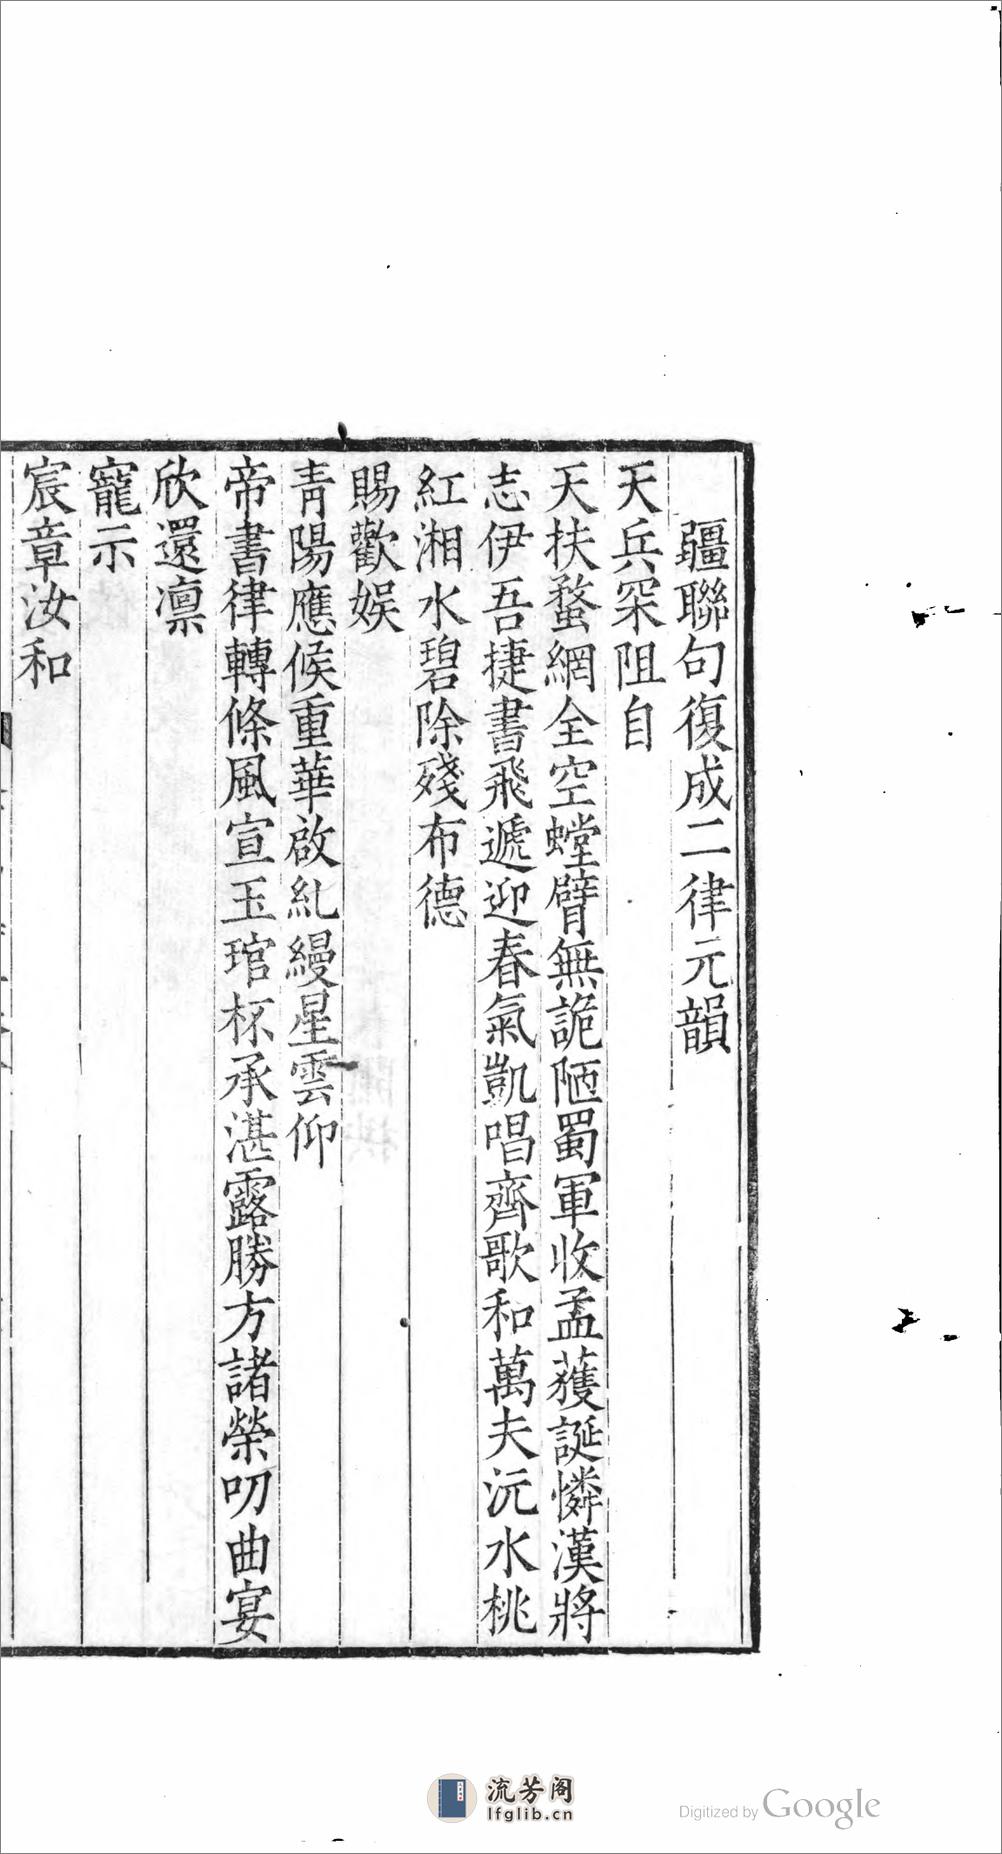 疆聯句復成二律元韻
天兵罙阻自
天扶蝥網全空螳臂無詭陋蜀軍收孟獲誕憐漢將
志伊吾捷書飛遞迎春氣凱唱齊歌和萬夫沅水桃
紅湘水碧除殘布德
賜歡娱
青陽應候重華啟糺縵星雲仰
帝書律轉條風宣玉琯杯承湛露勝方諸榮叨曲宴
欣還凛
寵示
宸章汝和
流芳阁
lfglib.cn
Digitized by Google